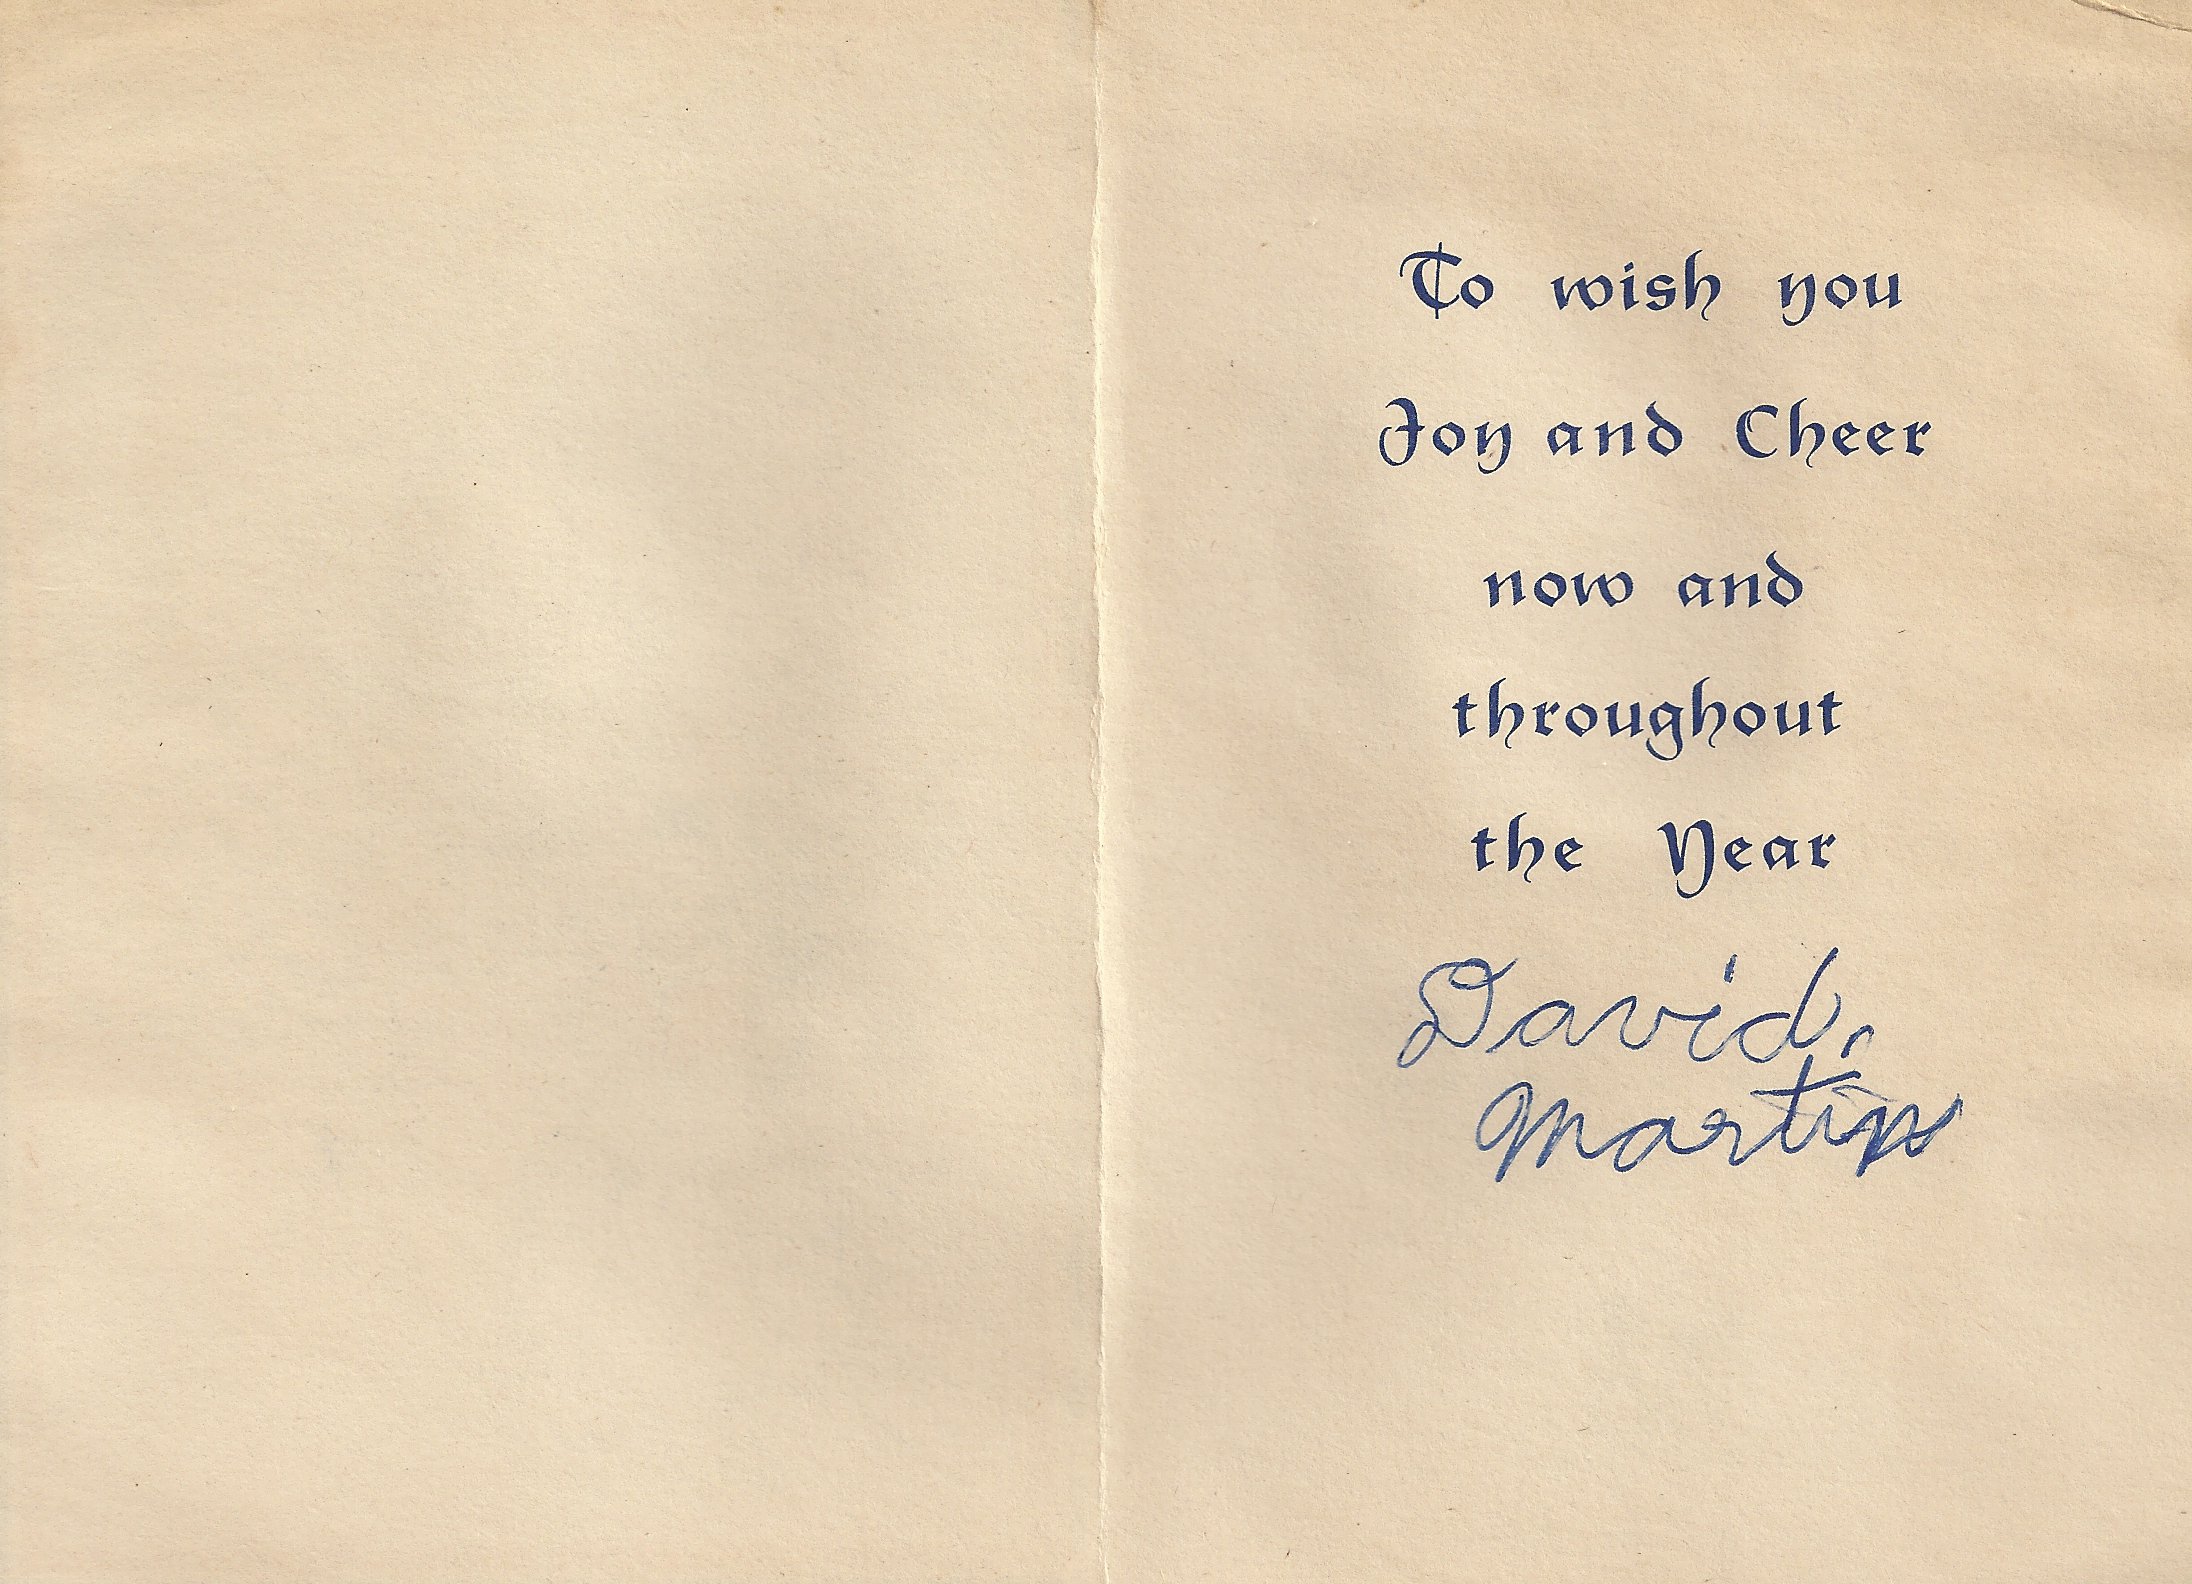 To wish you
Joy and Cheer
now and
throughout
the Year
David
Martin